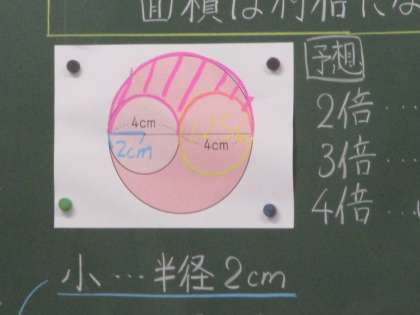 面積は何倍にな
予想
4cm
2cm
4cm
2倍…
3倍…
4倍…
小…半径2cm